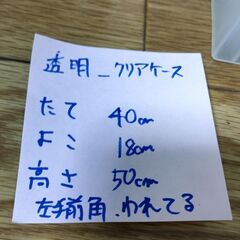 透明_クリアケース
たて 40cm
よこ 18cm
高さ 50cm
左手前角、われてる